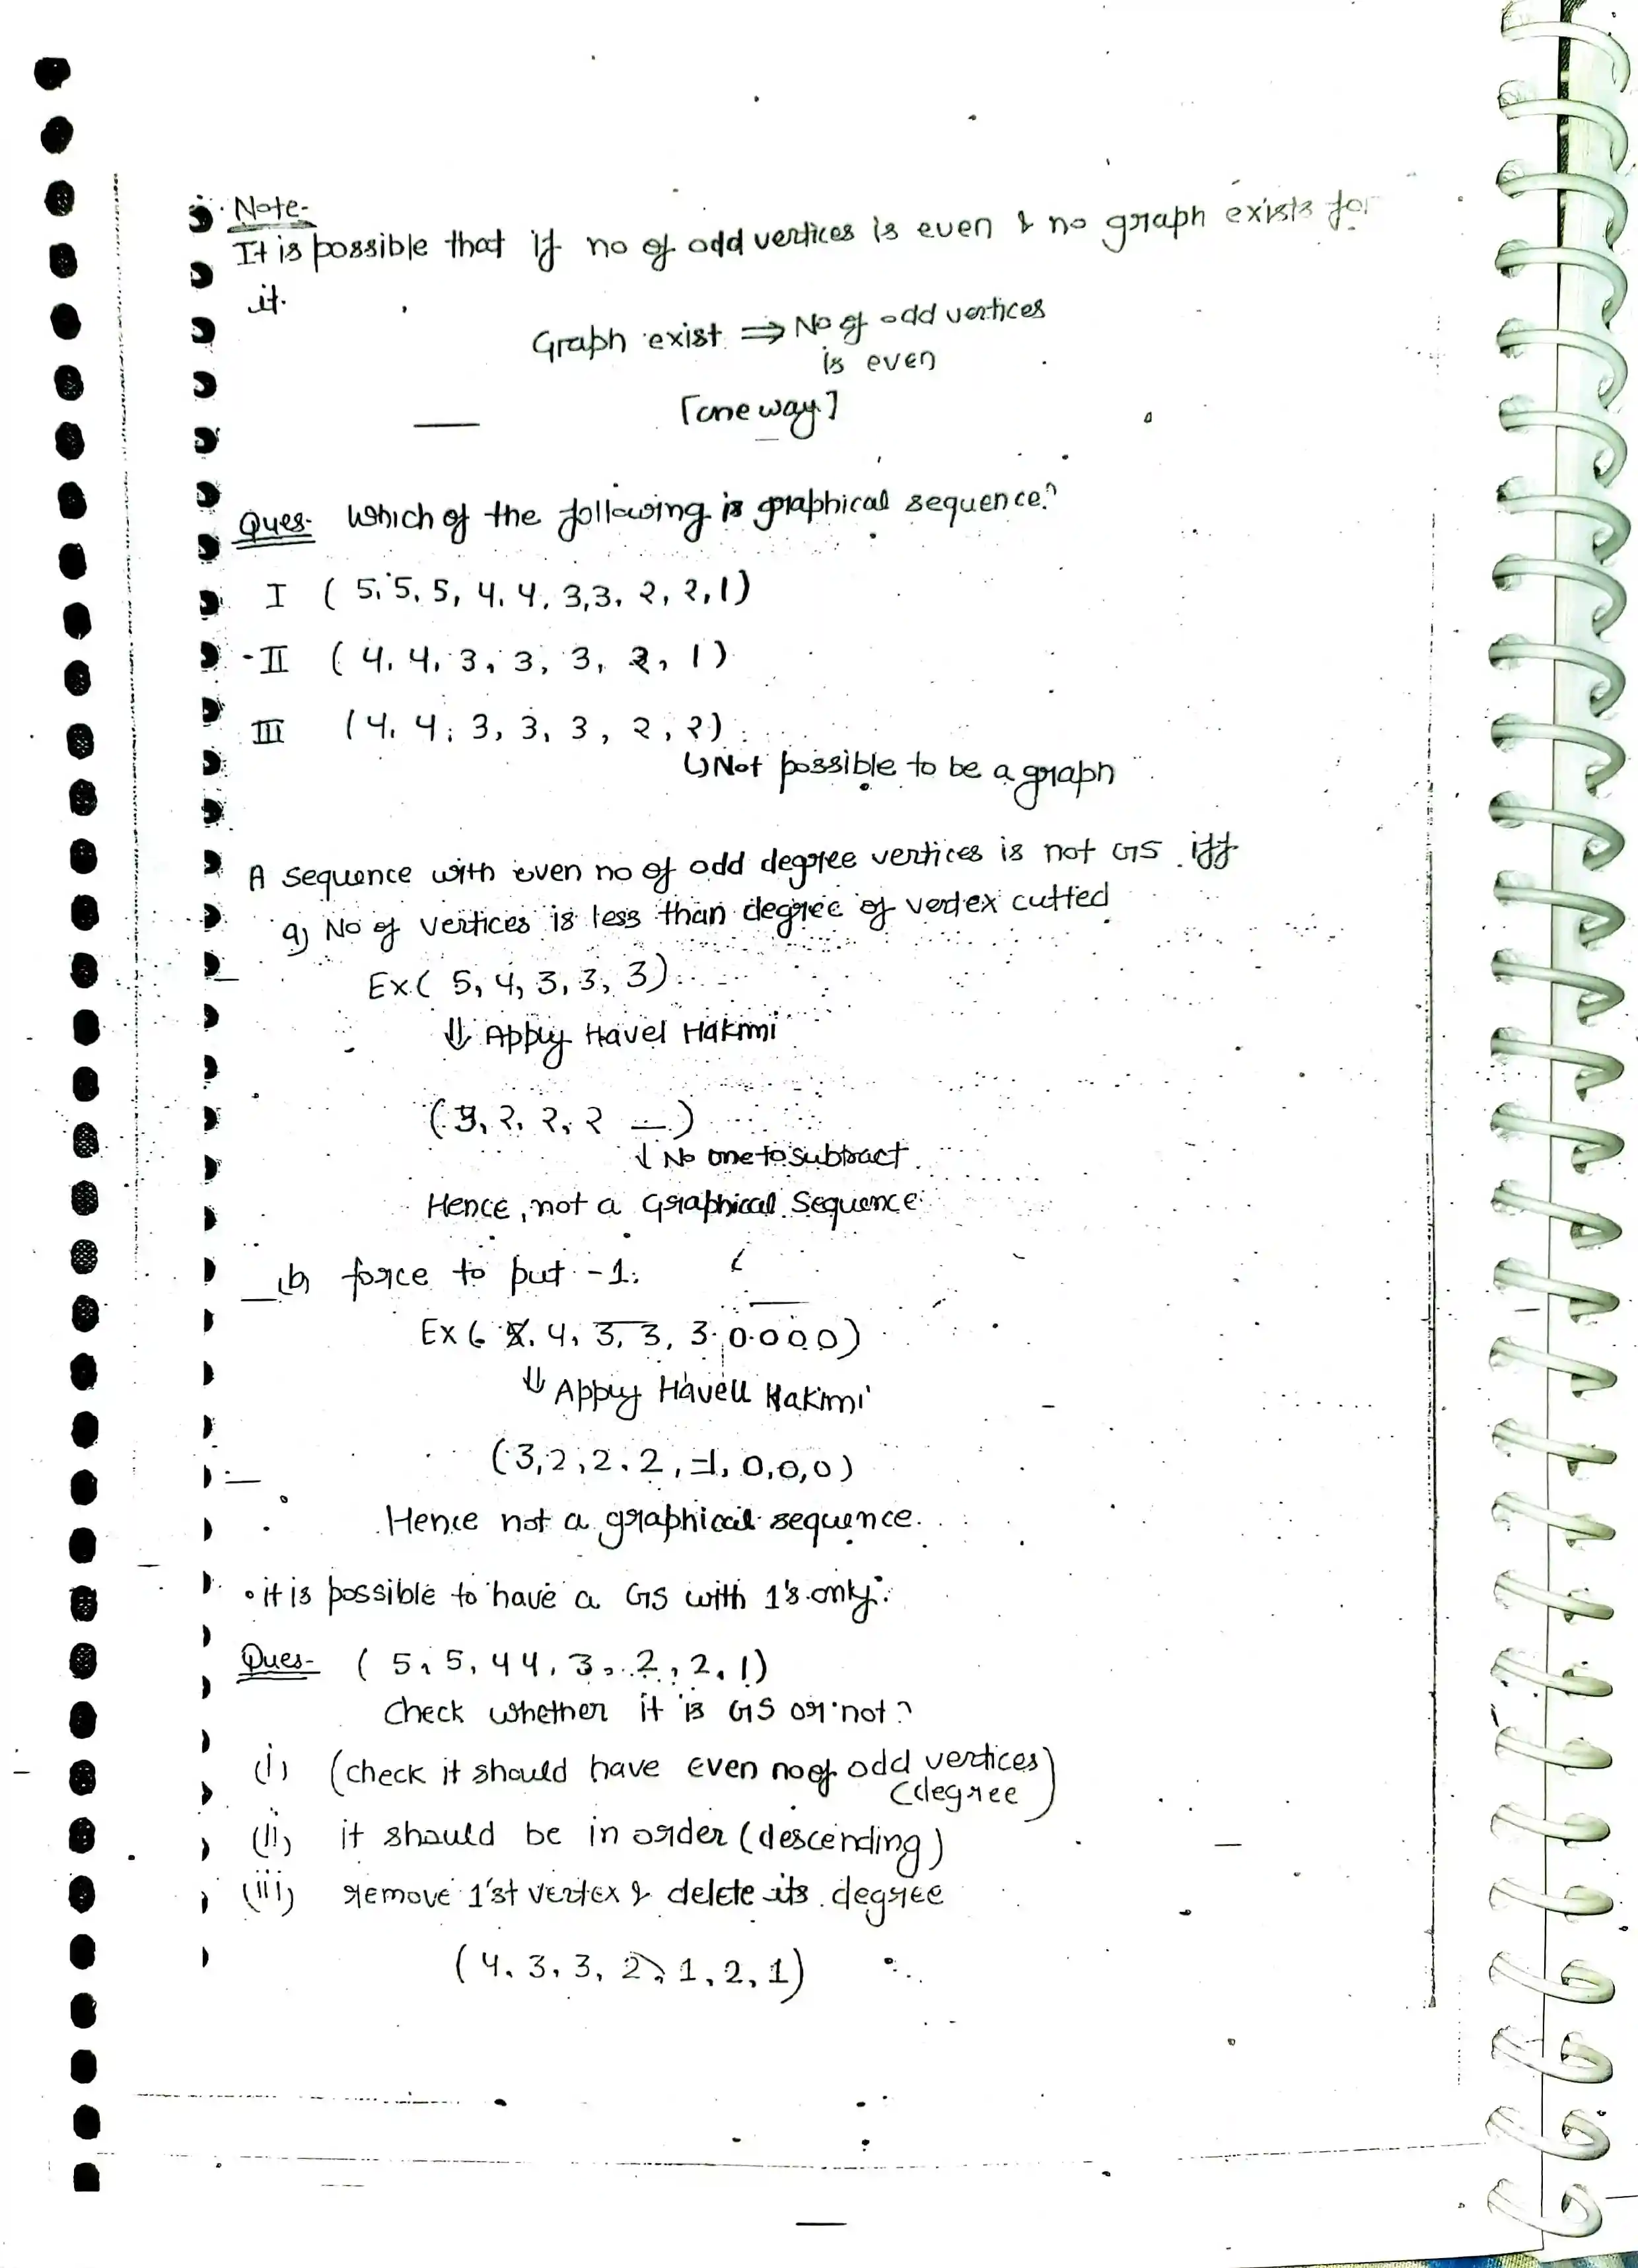 Note-
It is possible that if no of odd vertices is even & no graph exists for
it.
Graph exist ⇒ No of odd vertices
is even
[one way]
Ques- Which of the following is graphical sequence?
I ( 5, 5, 5, 4, 4, 3, 3, 2, 2, 1)
II ( 4, 4, 3, 3, 3, 2, 1)
III (4, 4, 3, 3, 3, 2, 2)
↳ Not possible to be a graph
A sequence with even no of odd degree vertices is not GS iff
a) No of vertices is less than degree of vertex cutted
Ex ( 5, 4, 3, 3, 3)
⇓ Apply Havel Hakimi
(3, 2, 2, 2 —)
↓ No one to subtract
Hence, not a Graphical Sequence
(b) force to put -1.
Ex ( 5, 4, 3, 3, 3, 0 0 0 0)
⇓ Apply Havell Hakimi
(3, 2, 2, 2, -1, 0, 0, 0)
Hence not a graphical sequence.
• it is possible to have a GS with 1's only.
Ques- ( 5, 5, 4 4, 3, 2, 2, 1)
Check whether it is GS or not?
(i) (check it should have even no of odd vertices)
(degree
(ii) it should be in order (descending)
(iii) remove 1'st vertex & delete its degree
(4, 3, 3, 2, 1, 2, 1)